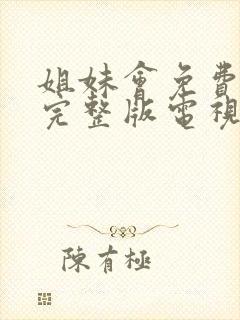 姐妹會免費
完整版電視
陳有極